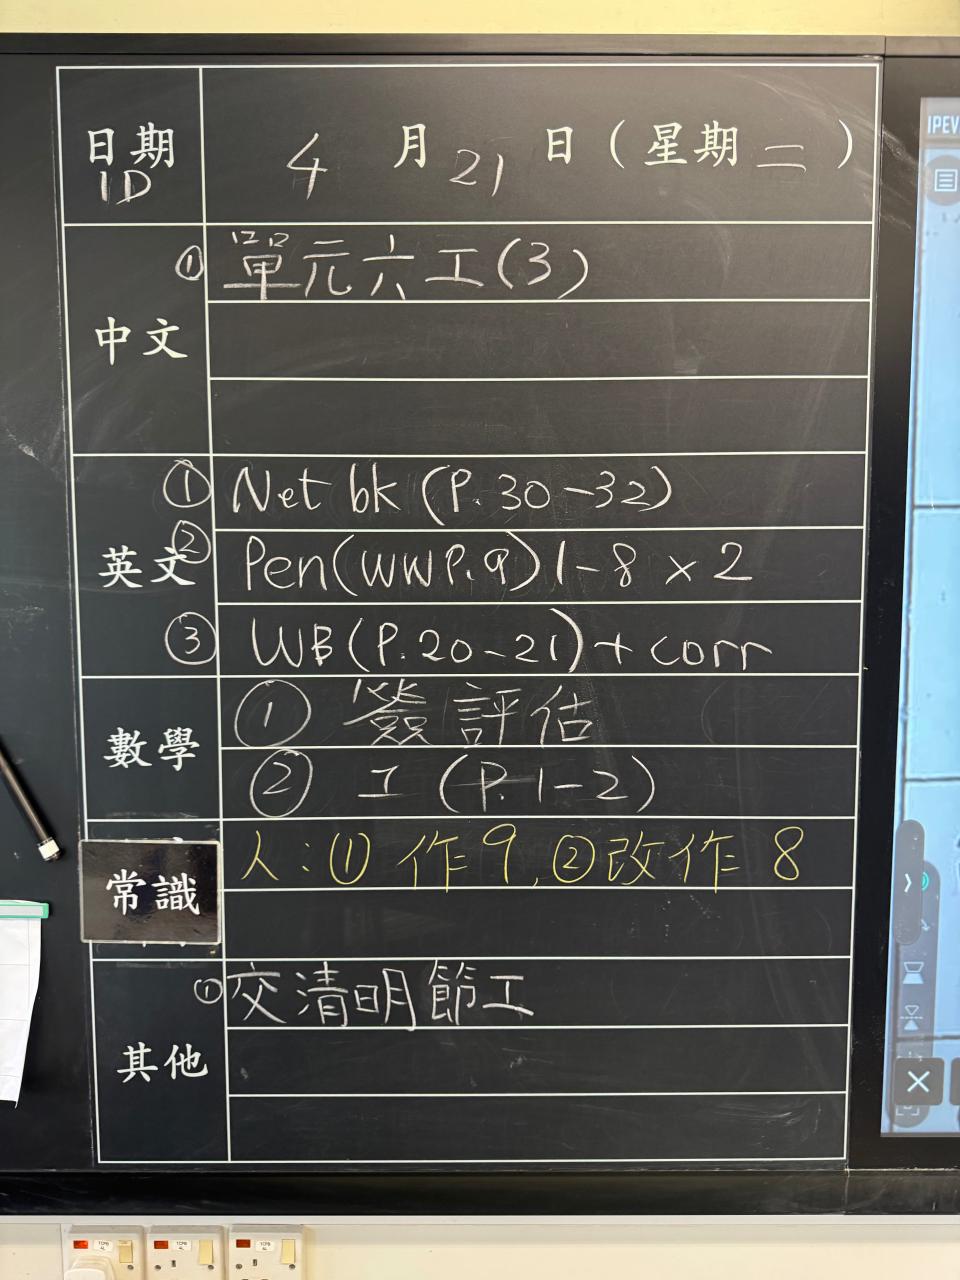 日期 4月21日(星期二)
1D
中文
① 單元六工(3)
英文
① Net bk (P.30-32)
② Pen(WW P.9) 1-8 x 2
③ WB(P.20-21)+ corr
數學
① 簽評估
② 工 (P.1-2)
常識
人:① 作9, ②改作 8
其他
① 交清明節工
IPEV